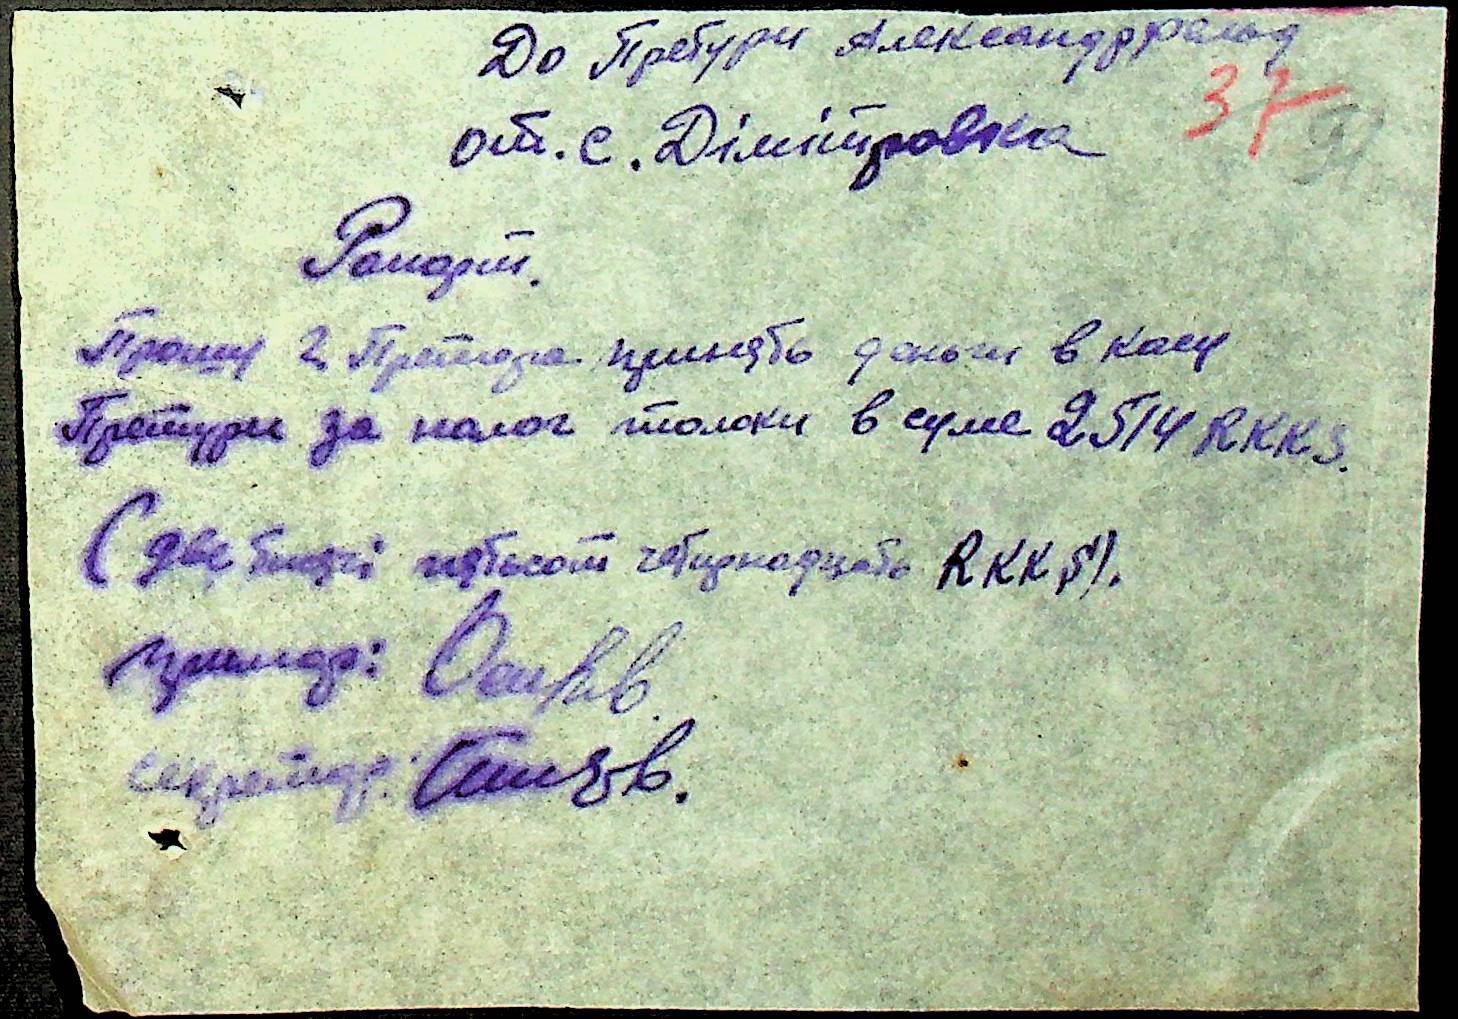 До Претури Александрфельд
37
от. с. Дімітровка
Рапорт.
Прошу г. Претора принять деньги в касу
Претури за налог толоки в суме 2514 RKKS.
(две тисячі пятьсот четирнадцать RKKS).
примар:
секретар: